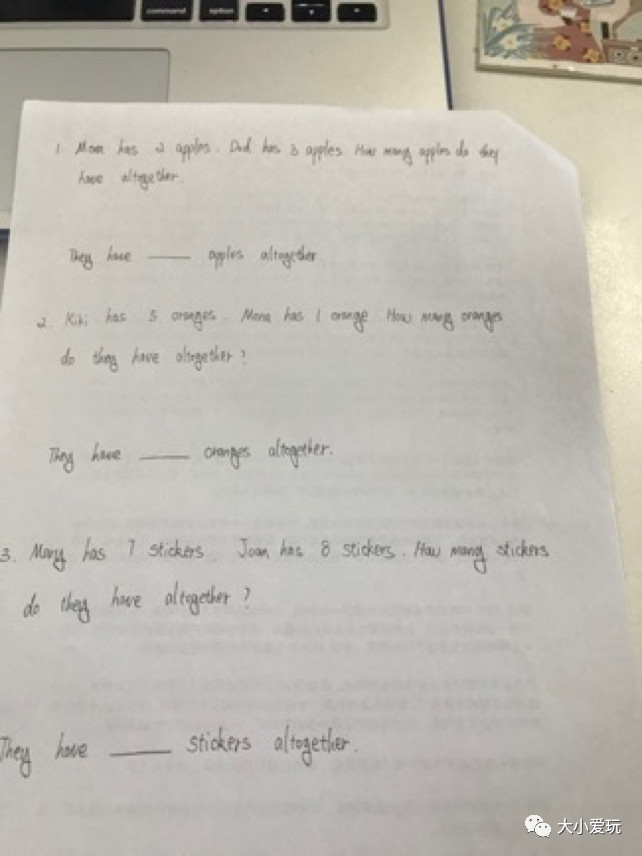 command option
1. Mom has 2 apples. Dad has 3 apples How many apples do they
have altogether.
They have ____ apples altogether
2. Kiki has 5 oranges. Mona has 1 orange How many oranges
do they have altogether?
They have ____ oranges altogether.
3. Mary has 7 stickers Joan has 8 stickers. How many stickers
do they have altogether?
They have ____ stickers altogether.
大小爱玩